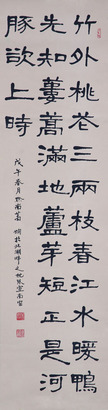 竹外桃花三兩枝春江水暖鴨
先知蔞蒿滿地蘆芽短正是河
豚欲上時
戊午春月